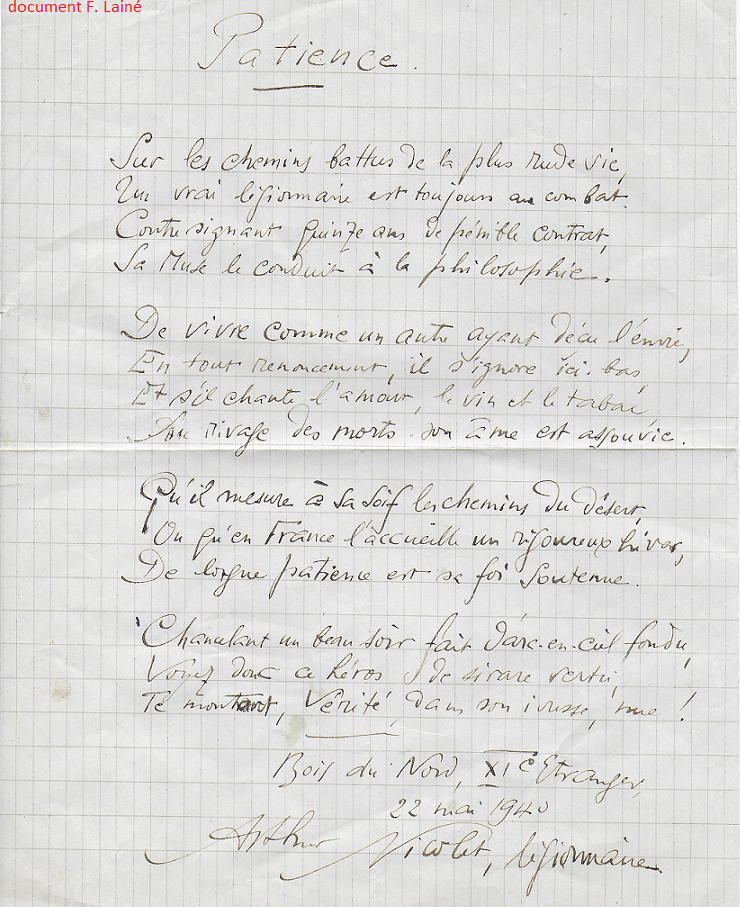 document F. Lainé
Patience.
Sur les chemins battus de la plus rude vie,
Un vrai légionnaire est toujours au combat.
Contresignant quinze ans de pénible contrat,
Sa Muse le conduit à la philosophie.
De vivre comme un autre ayant déçu l'envie,
En tout renoncement, il s'ignore ici-bas,
Et s'il chante l'amour, le vin et le tabac,
Au rivage des morts son âme est assouvie.
Qu'il mesure à sa soif les chemins du désert,
Ou qu'en France l'accueille un rigoureux hiver,
De longue patience est sa foi soutenue.
Chancelant un beau soir fait d'arc-en-ciel fondu,
Voyez donc ce héros de si rare vertu,
Te montrant, Vérité, dans son ivresse, nue !
Bois du Nord, XIe Etranger,
22 mai 1940
Arthur Nicolet, légionnaire.